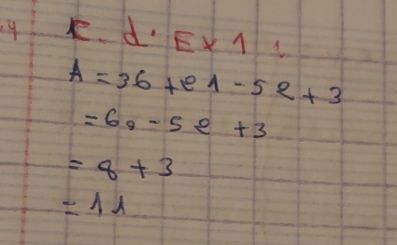 C. d. Ex 1 :
A = 36 + 24 - 52 + 3
= 60 - 52 + 3
= 8 + 3
= 11